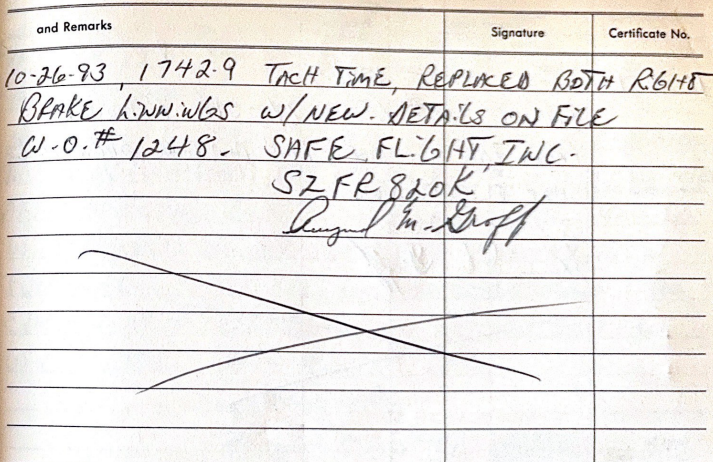 and Remarks Signature Certificate No.
10-26-93, 1742.9 TACH TIME, REPLACED BOTH RIGHT
BRAKE LININGS W/ NEW. DETAILS ON FILE
W.O.# 1248. SAFE FLIGHT, INC.
SZFR820K
August M. Groff